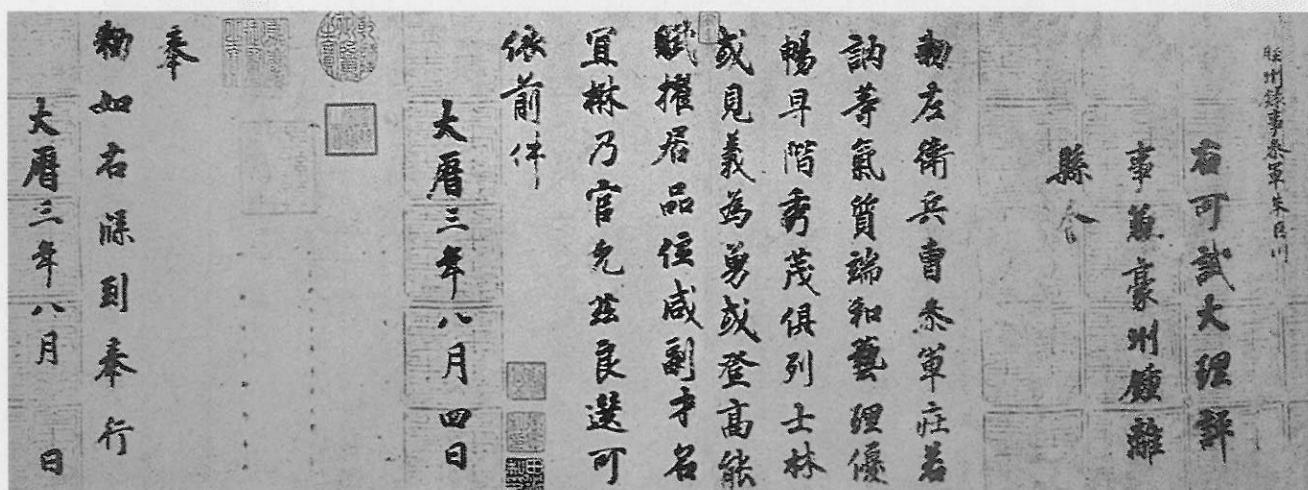 睦州録事參軍朱巨川
右可試大理評
事兼豪州鍾離
縣令
勑左衛兵曹叅軍庄若
訥等氣質端和藝理優
暢早階秀茂俱列士林
或見義為勇或登高能
賦擢居品位咸副才名
宜楙乃官允茲良選可
依前件
大曆三年八月四日
奉
勑如右牒到奉行
大曆三年八月 日